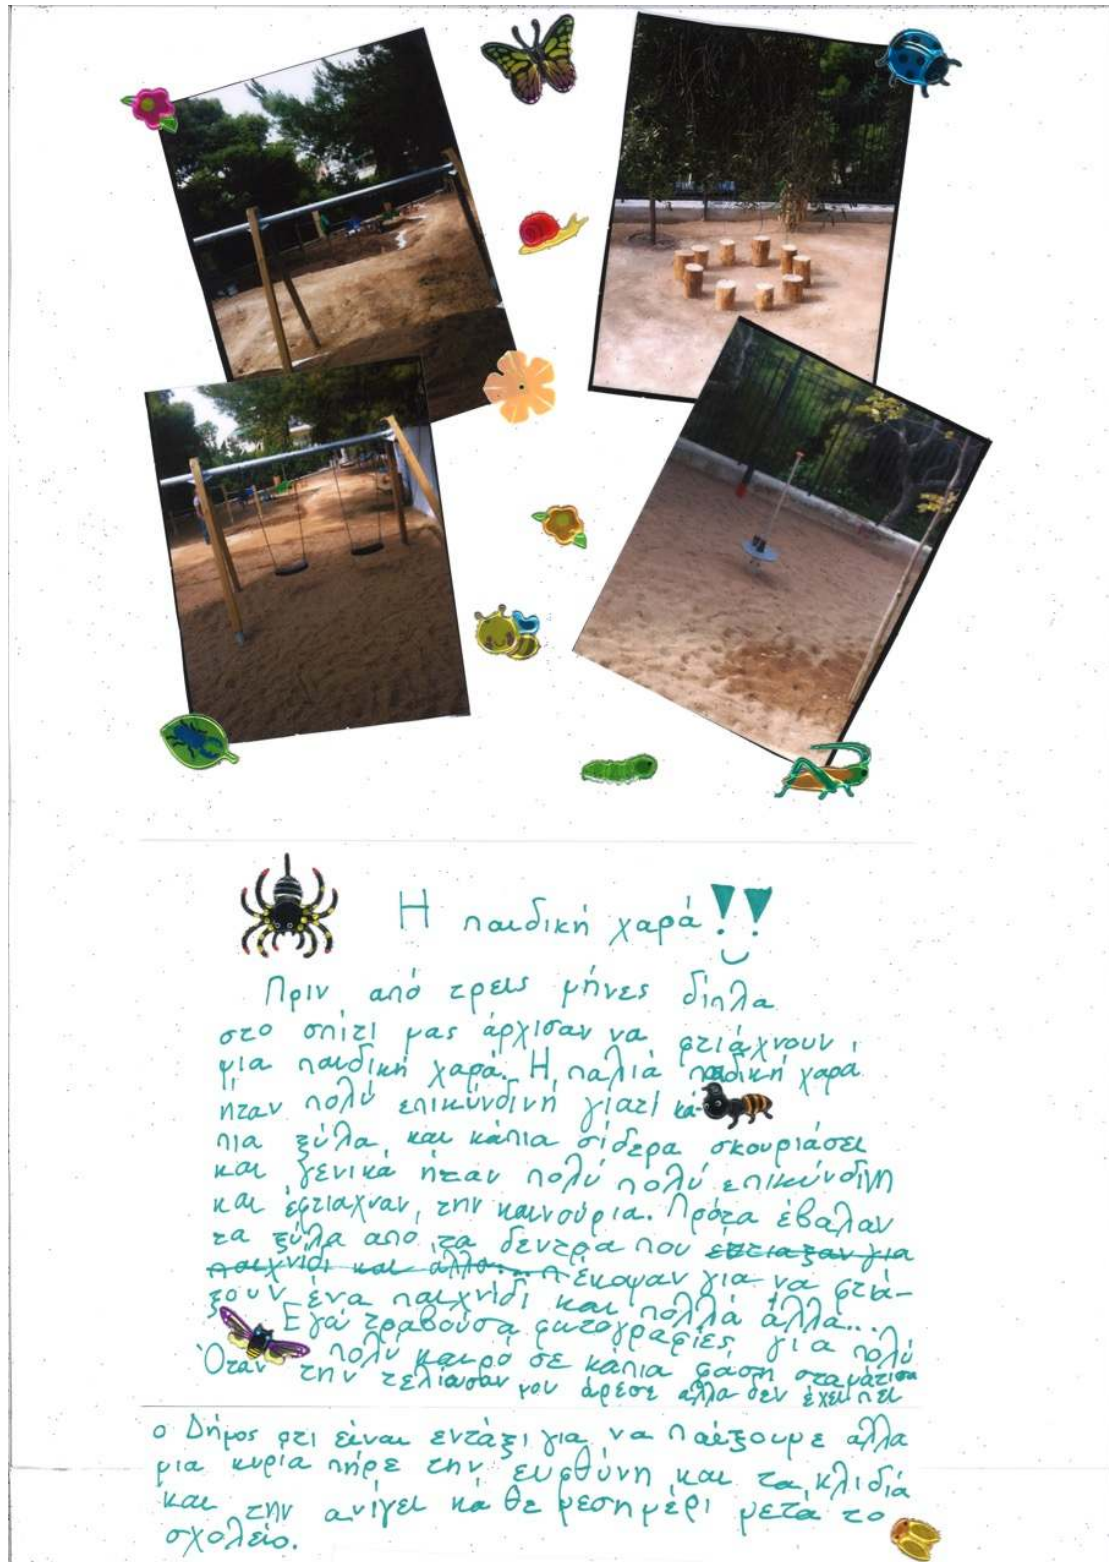 Η παιδική χαρά!!
Πριν από τρεις μήνες δίπλα
στο σπίτι μας άρχισαν να φτιάχνουν
μια παιδική χαρά. Η παλιά παιδική χαρά
ήταν πολύ επικύνδινη γιατί κά-
πια ξύλα και κάπια σίδερα σκουριάσει
και γενικά ήταν πολύ πολύ επικύνδινη
και έφτιαχναν την καινούρια. Πρότα έβαλαν
τα ξύλα από τα δεντρα που έφτιαξαν για
παιχνίδι και άλλα... έκοψαν για να φτιά-
ξουν ένα παιχνίδι και πολλά άλλα...
Εγώ τραβούσα φωτογραφίες για πολύ
πολύ καιρό σε κάπια φαση σταμάτισα
Όταν την τέλιωσαν μου άρεσε αλλα δεν έχει πει
ο Δήμος οτι είναι εντάξι για να παίξουμε αλλα
μια κυρια πήρε την ευρθύνη και τα κλιδιά
και την ανίγει κά θε μεσημέρι μετά το
σχολείο.